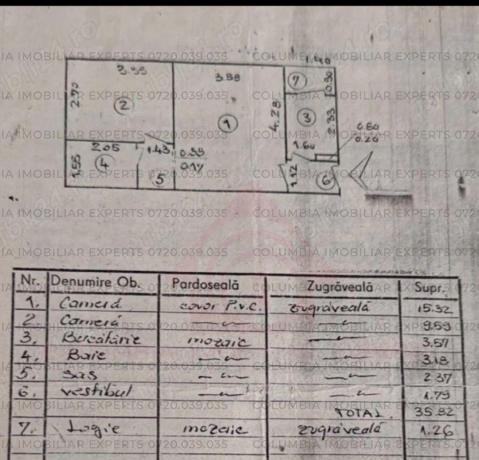 COLUMBIA IMOBILIAR EXPERTS 0720.039.035
1.40
3.55 3.88 7 0.90
2.70 2 1 4.28 3 2.33
0.60
0.20
2.05 1.43 0.35 1.60
1.55 4 5 0.14 1.12 6
Nr. Denumire Ob. Pardoseală Zugrăveală Supr.
1. Cameră covor P.v.c. zugrăveală 15.32
2. Cameră —〃— —〃— 9.59
3. Bucătărie mozaic —〃— 3.57
4. Baie —〃— —〃— 3.18
5. Sas —〃— —〃— 2.37
6. vestibul —〃— —〃— 1.79
TOTAL 35.82
7. Logie mozaic zugrăveală 1.26